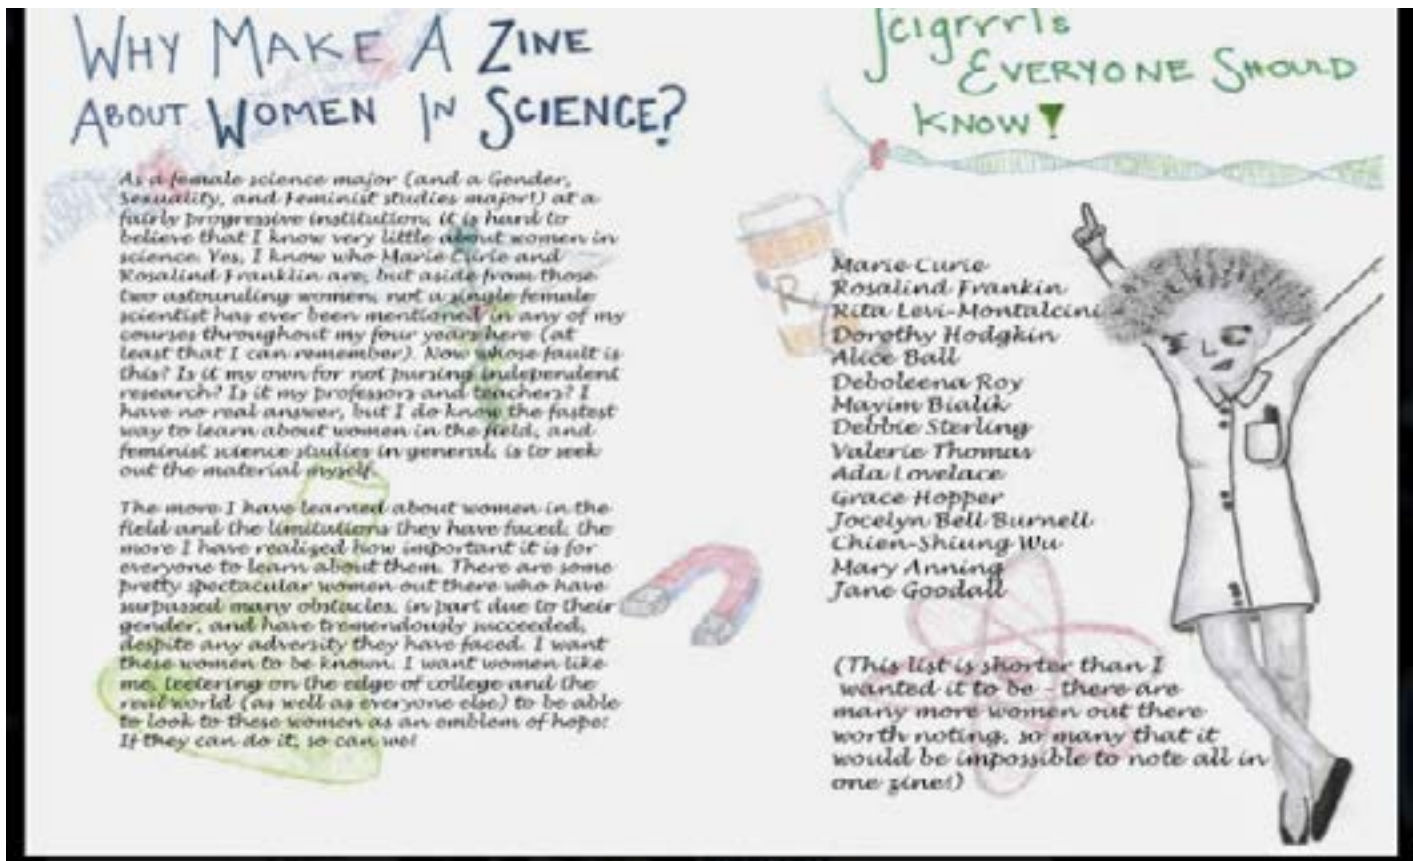 WHY MAKE A ZINE
ABOUT WOMEN IN SCIENCE?
As a female science major (and a Gender,
Sexuality, and Feminist studies major!) at a
fairly progressive institution, it is hard to
believe that I know very little about women in
science. Yes, I know who Marie Curie and
Rosalind Franklin are, but aside from those
two astounding women, not a single female
scientist has ever been mentioned in any of my
courses throughout my four years here (at
least that I can remember). Now whose fault is
this? Is it my own for not pursing independent
research? Is it my professors and teachers? I
have no real answer, but I do know the fastest
way to learn about women in the field, and
feminist science studies in general, is to seek
out the material myself.
The more I have learned about women in the
field and the limitations they have faced, the
more I have realized how important it is for
everyone to learn about them. There are some
pretty spectacular women out there who have
surpassed many obstacles, in part due to their
gender, and have tremendously succeeded,
despite any adversity they have faced. I want
these women to be known. I want women like
me, teetering on the edge of college and the
real world (as well as everyone else) to be able
to look to these women as an emblem of hope:
If they can do it, so can we!
Scigrrrls
EVERYONE SHOULD
KNOW!
Marie Curie
Rosalind Frankin
Rita Levi-Montalcini
Dorothy Hodgkin
Alice Ball
Deboleena Roy
Mayim Bialik
Debbie Sterling
Valerie Thomas
Ada Lovelace
Grace Hopper
Jocelyn Bell Burnell
Chien-Shiung Wu
Mary Anning
Jane Goodall
(This list is shorter than I
wanted it to be - there are
many more women out there
worth noting, so many that it
would be impossible to note all in
one zine!)